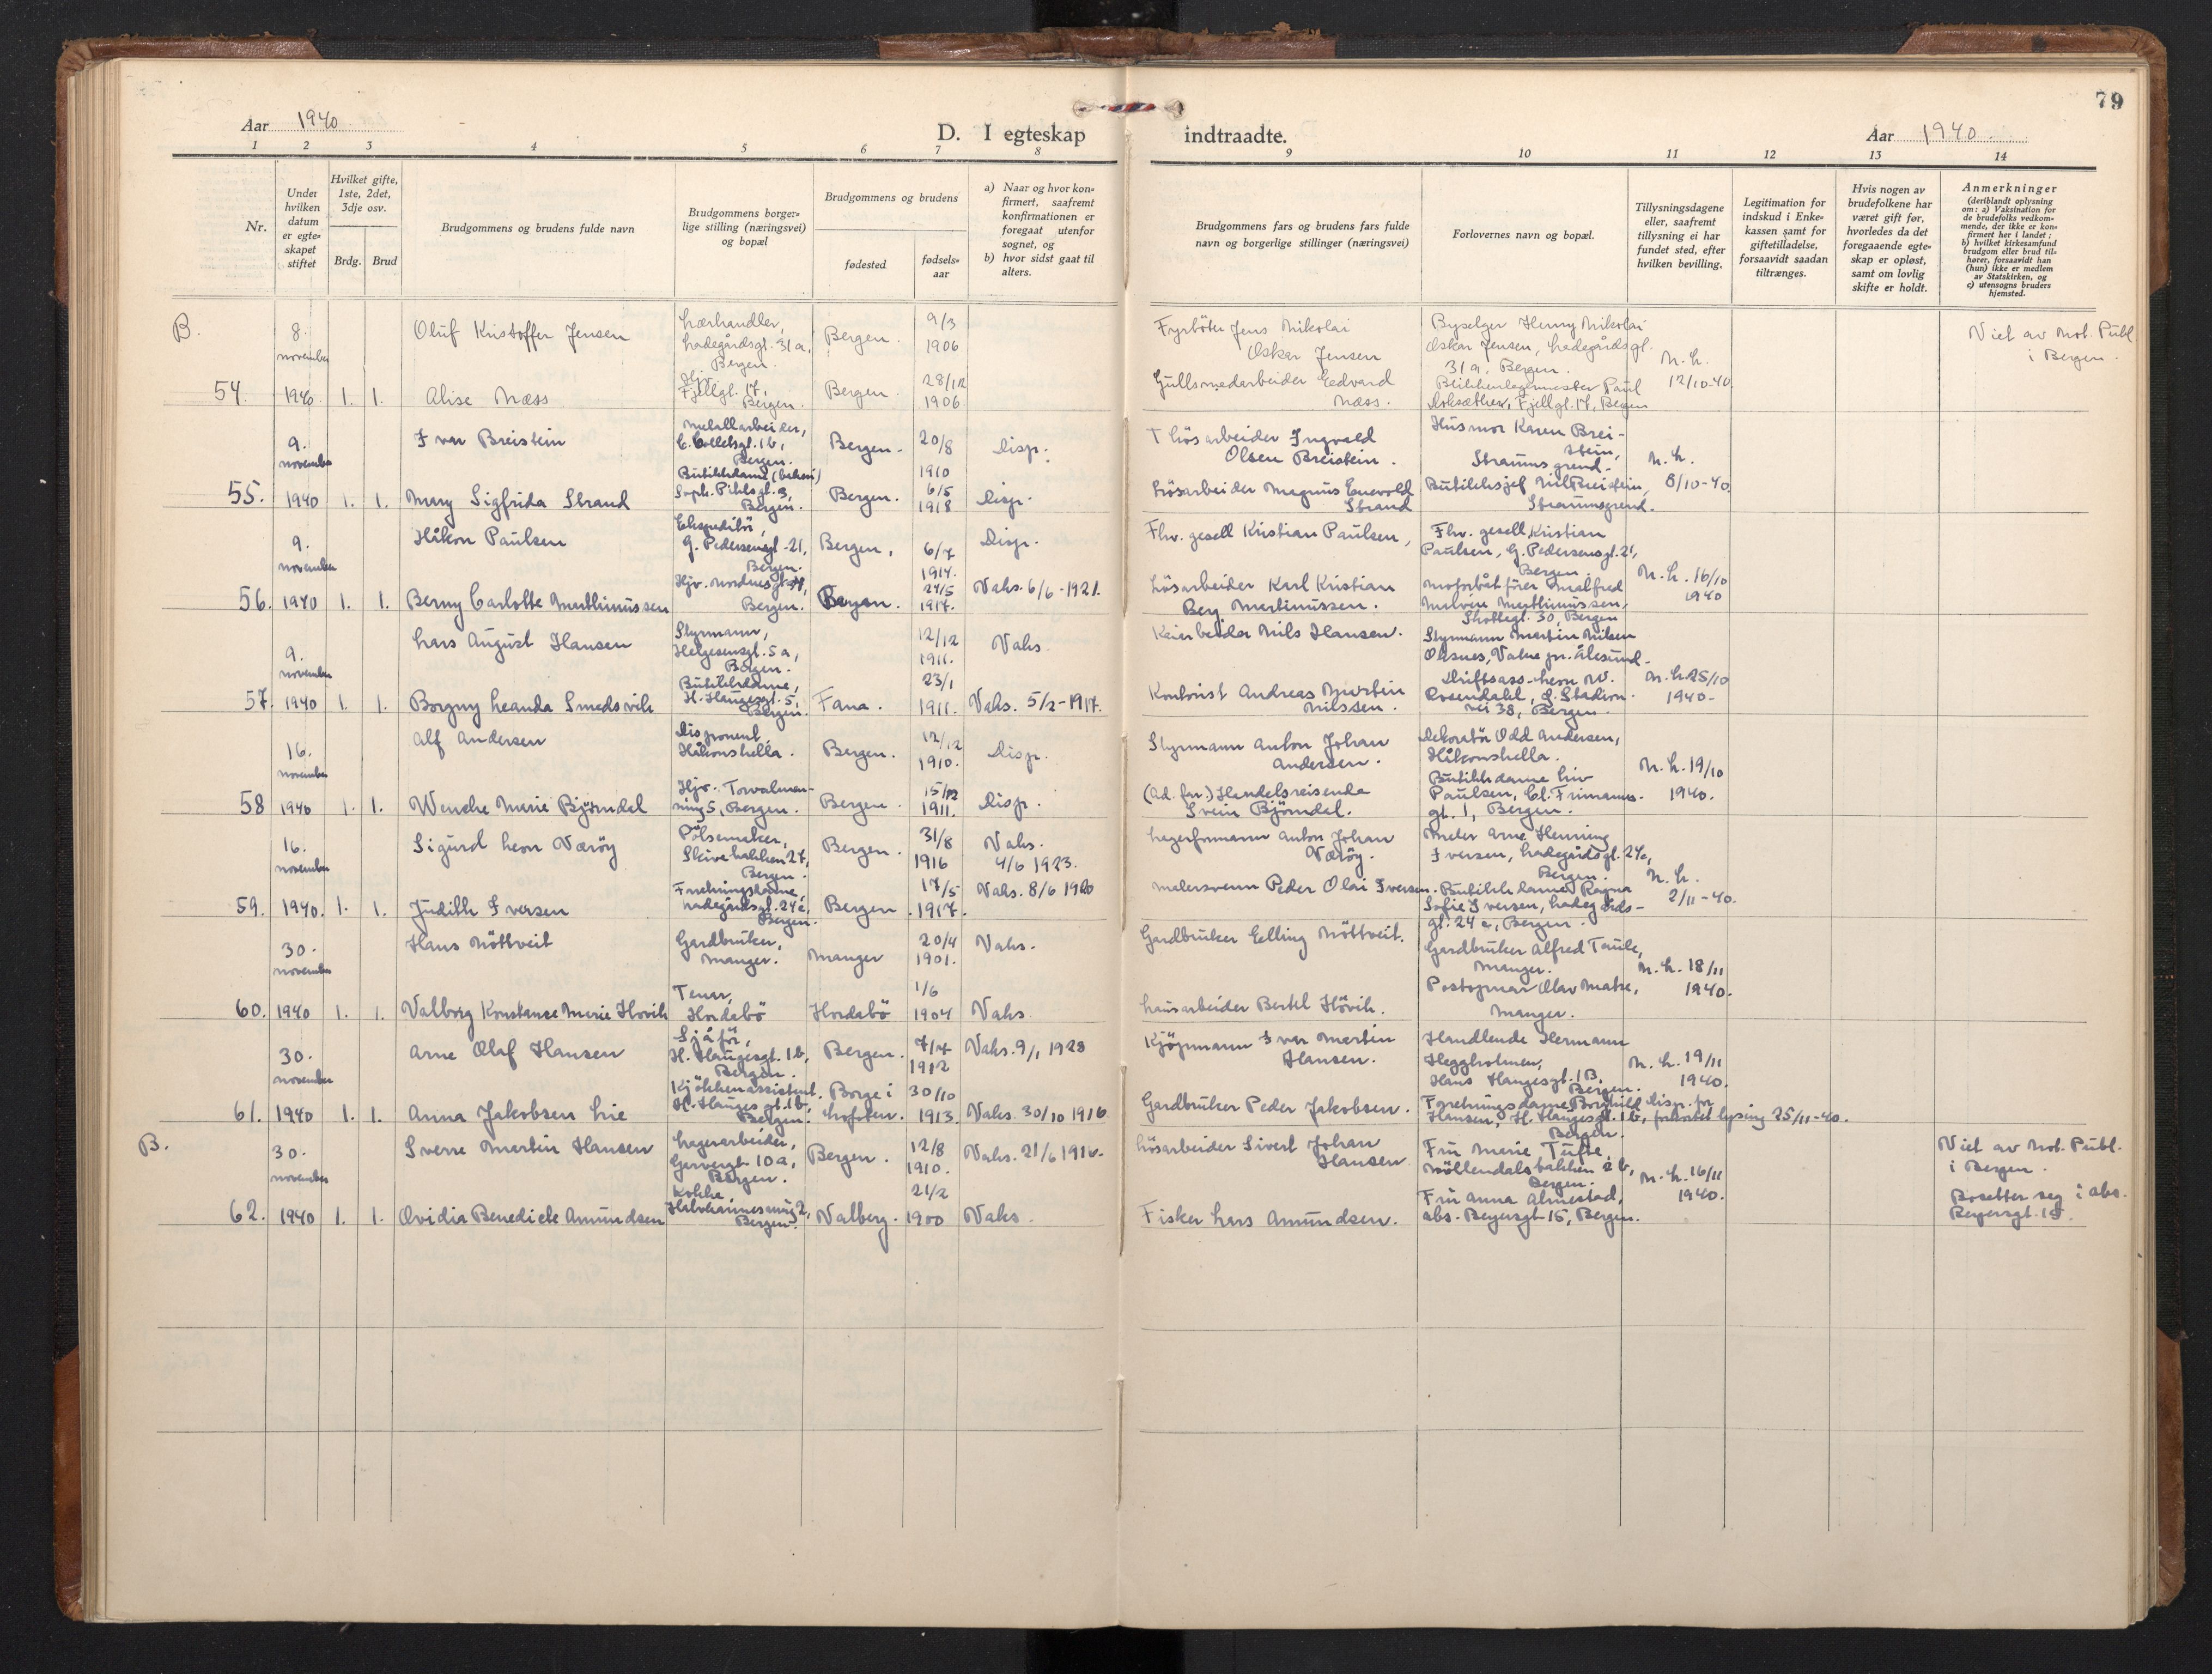 79
Aar 1940
D. I egteskap indtraadte.
Aar 1940
1 2 3 4 5 6 7 8 9 10 11 12 13 14
Nr.
Under hvilken datum er egteskapet stiftet
Hvilket gifte, 1ste, 2det, 3dje osv.
Brdg. Brud
Brudgommens og brudens fulde navn
Brudgommens borgerlige stilling (næringsvei) og bopæl
Brudgommens og brudens
fødested
fødselsaar
a) Naar og hvor konfirmert, saafremt konfirmationen er foregaat utenfor sognet, og
b) hvor sidst gaat til alters.
Brudgommens fars og brudens fars fulde navn og borgerlige stillinger (næringsvei)
Forlovernes navn og bopæl.
Tillysningsdagene eller, saafremt tillysning ei har fundet sted, efter hvilken bevilling.
Legitimation for indskud i Enkekassen samt for giftetilladelse, forsaavidt saadan tiltrænges.
Hvis nogen av brudefolkene har været gift før, hvorledes da det foregaaende egteskap er opløst, samt om lovlig skifte er holdt.
Anmerkninger
(deriblandt oplysning om: a) Vaksination for de brudefolks vedkommende, der ikke er konfirmert her i landet; b) hvilket kirkesamfund brudgom eller brud tilhører, forsaavidt han (hun) ikke er medlem av Statskirken, og c) utensogns bruders hjemsted.
B.
54.
8. november 1940
1. 1.
Oluf Kristoffer Jensen
Lærhandler, Ladegårdsgt. 31a, Bergen.
Bergen.
9/3 1906
Fyrböter Jens Mikolai Oskar Jensen
Byselger Henny Nikolai Oskar Jensen, Ladegårdsgt. 31a, Bergen.
N. K. 12/10-40.
Viet av Not. Publ. i Bergen.
Alise Næss
Hjv. Fjellgt. 17, Bergen.
Bergen.
28/12 1906.
Gullsmedarbeider Edvard Næss.
Blikkenslagermester Paul Fjellgt. 17, Bergen
55.
9. november 1940
1. 1.
Ivar Breistein
Metallarbeider, C. Colletsgt. 1b, Bergen.
Bergen.
20/8 1910
Disp.
Lösarbeider Ingvald Olsen Breistein.
Husmor Karen Breistein, Straumsgrend.
N. K. 8/10-40.
Mary Sigfrida Strand
Butikkdame (bakeri) Soph. Pihlsgt. 3, Bergen.
Bergen.
6/5 1918
Disp.
Lösarbeider Magnus Enevold Strand
Butikksjef Nils Breistein, Straumsgrend.
56.
9. november 1940
1. 1.
Håkon Paulsen
Ekspeditör, G. Pedersensgt. 21, Bergen.
Bergen,
6/7 1914.
Disp.
Fhv. gesell Kristian Paulsen,
Fhv. gesell Kristian Paulsen, G. Pedersensgt. 21, Bergen.
N. K. 16/10 1940
Berny Carlotte Marthinussen
Hjv. Nordnesgt. Bergen.
Bergen.
24/5 1914.
Vaks. 6/6-1921.
Lösarbeider Karl Kristian Berg Martinussen.
Motorbåtförer Malfred Marthinussen, Skottegt. 30, Bergen
57.
9. november 1940
1. 1.
Lars August Hansen
Styrmann, Helgesensgt. 5a, Bergen.
12/12 1911.
Vaks.
Keiarbeider Nils Hansen.
Styrmann Martin Nilsen Oksnes, Vatne pr. Ålesund.
N. K. 25/10 1940-
Borgny Leanda Smedsvik
Butikkdame, H. Haugesgt. 5, Bergen.
Fana.
23/1 1911.
Vaks. 5/2-1917.
Kontorist Andreas Martin Nilssen.
Driftsass. Leon W. Rosendahl, S. Stadionvei 38, Bergen.
58
16. november 1940
1. 1.
Alf Andersen
Disponent, Håkonshella.
Bergen.
12/12 1910.
Disp.
Styrmann Anton Johan Andersen.
Dekoratör Odd Andersen, Håkonshella.
N. K. 19/10 1940.
Wenche Marie Björndal
Hjv. Torvalmenning 5, Bergen.
Bergen.
15/12 1911.
Disp.
(Ad. far.) Handelsreisende Svein Björndal.
Butikkdame Liv Paulsen, Cl. Frimannsgt. 1, Bergen.
59.
16. november 1940.
1. 1.
Sigurd Leon Væröy
Pölsemaker, Skivebakken 27, Bergen.
Bergen.
31/8 1916
Vaks. 4/6 1923.
Lagerformann Anton Johan Væröy.
Maler Arne Henning Iversen, Ladegårdsgt. 24c, Bergen.
N. K. 2/11-40.
Judith Iversen
Forretningsdame, Ladegårdsgt. 24c, Bergen.
Bergen.
17/5 1917.
Vaks. 8/6 1920
Malersvenn Peder Olai Iversen.
Butikkdame Ragna Sofie Iversen, Ladegårdsgt. 24c, Bergen.
60.
30. november 1940
1. 1.
Hans Nöttveit
Gardbruker, Manger.
Manger
20/4 1901.
Vaks.
Gardbruker Elling Nöttveit.
Gardbruker Alfred Taule, Manger.
N. K. 18/11 1940.
Valborg Konstanse Marie Hövik
Tenar, Hordabö
Hordabö
1/6 1904
Vaks.
Lausarbeider Bertel Hövik.
Postopnar Olav Matre, Manger.
61.
30. november 1940
1. 1.
Arne Olaf Hansen
Sjåför, H. Haugesgt. 1b, Bergen.
Bergen.
7/7 1912
Vaks. 9/1 1928
Kjöpmann Ivar Martin Hansen.
Handlende Hermann Heggholmen, Hans Haugesgt. 1B, Bergen.
N. K. 19/11 1940.
Anna Jakobsen Lie
Kjökkenassistent, H. Hauges gt. 1b, Bergen.
Borge i Lofoten.
30/10 1913.
Vaks. 30/10 1916
Gardbruker Peder Jakobsen.
Forretningsdame Borghild Hansen, H. Haugesgt. 1b, Bergen.
Disp. for forkortet lysing 25/11-40.
B.
62.
30. november 1940
1. 1.
Sverre Martin Hansen
Lagerarbeider, Garvergt. 10a, Bergen.
Bergen.
12/8 1910.
Vaks. 21/6 1916.
Lösarbeider Sivert Johan Hansen
Fru Marie Tufte, Möllendalsbakken 2b, Bergen.
N. K. 16/11 1940.
Viet av Not. Publ. i Bergen.
Bosetter seg i abs. Beyersgt. 15.
Ovidia Benedicte Amundsen
Kokke, Bergen.
Valberg.
21/2 1900
Vaks.
Fisker Lars Amundsen.
Fru Anna Almestad, abs. Beyersgt 15, Bergen.